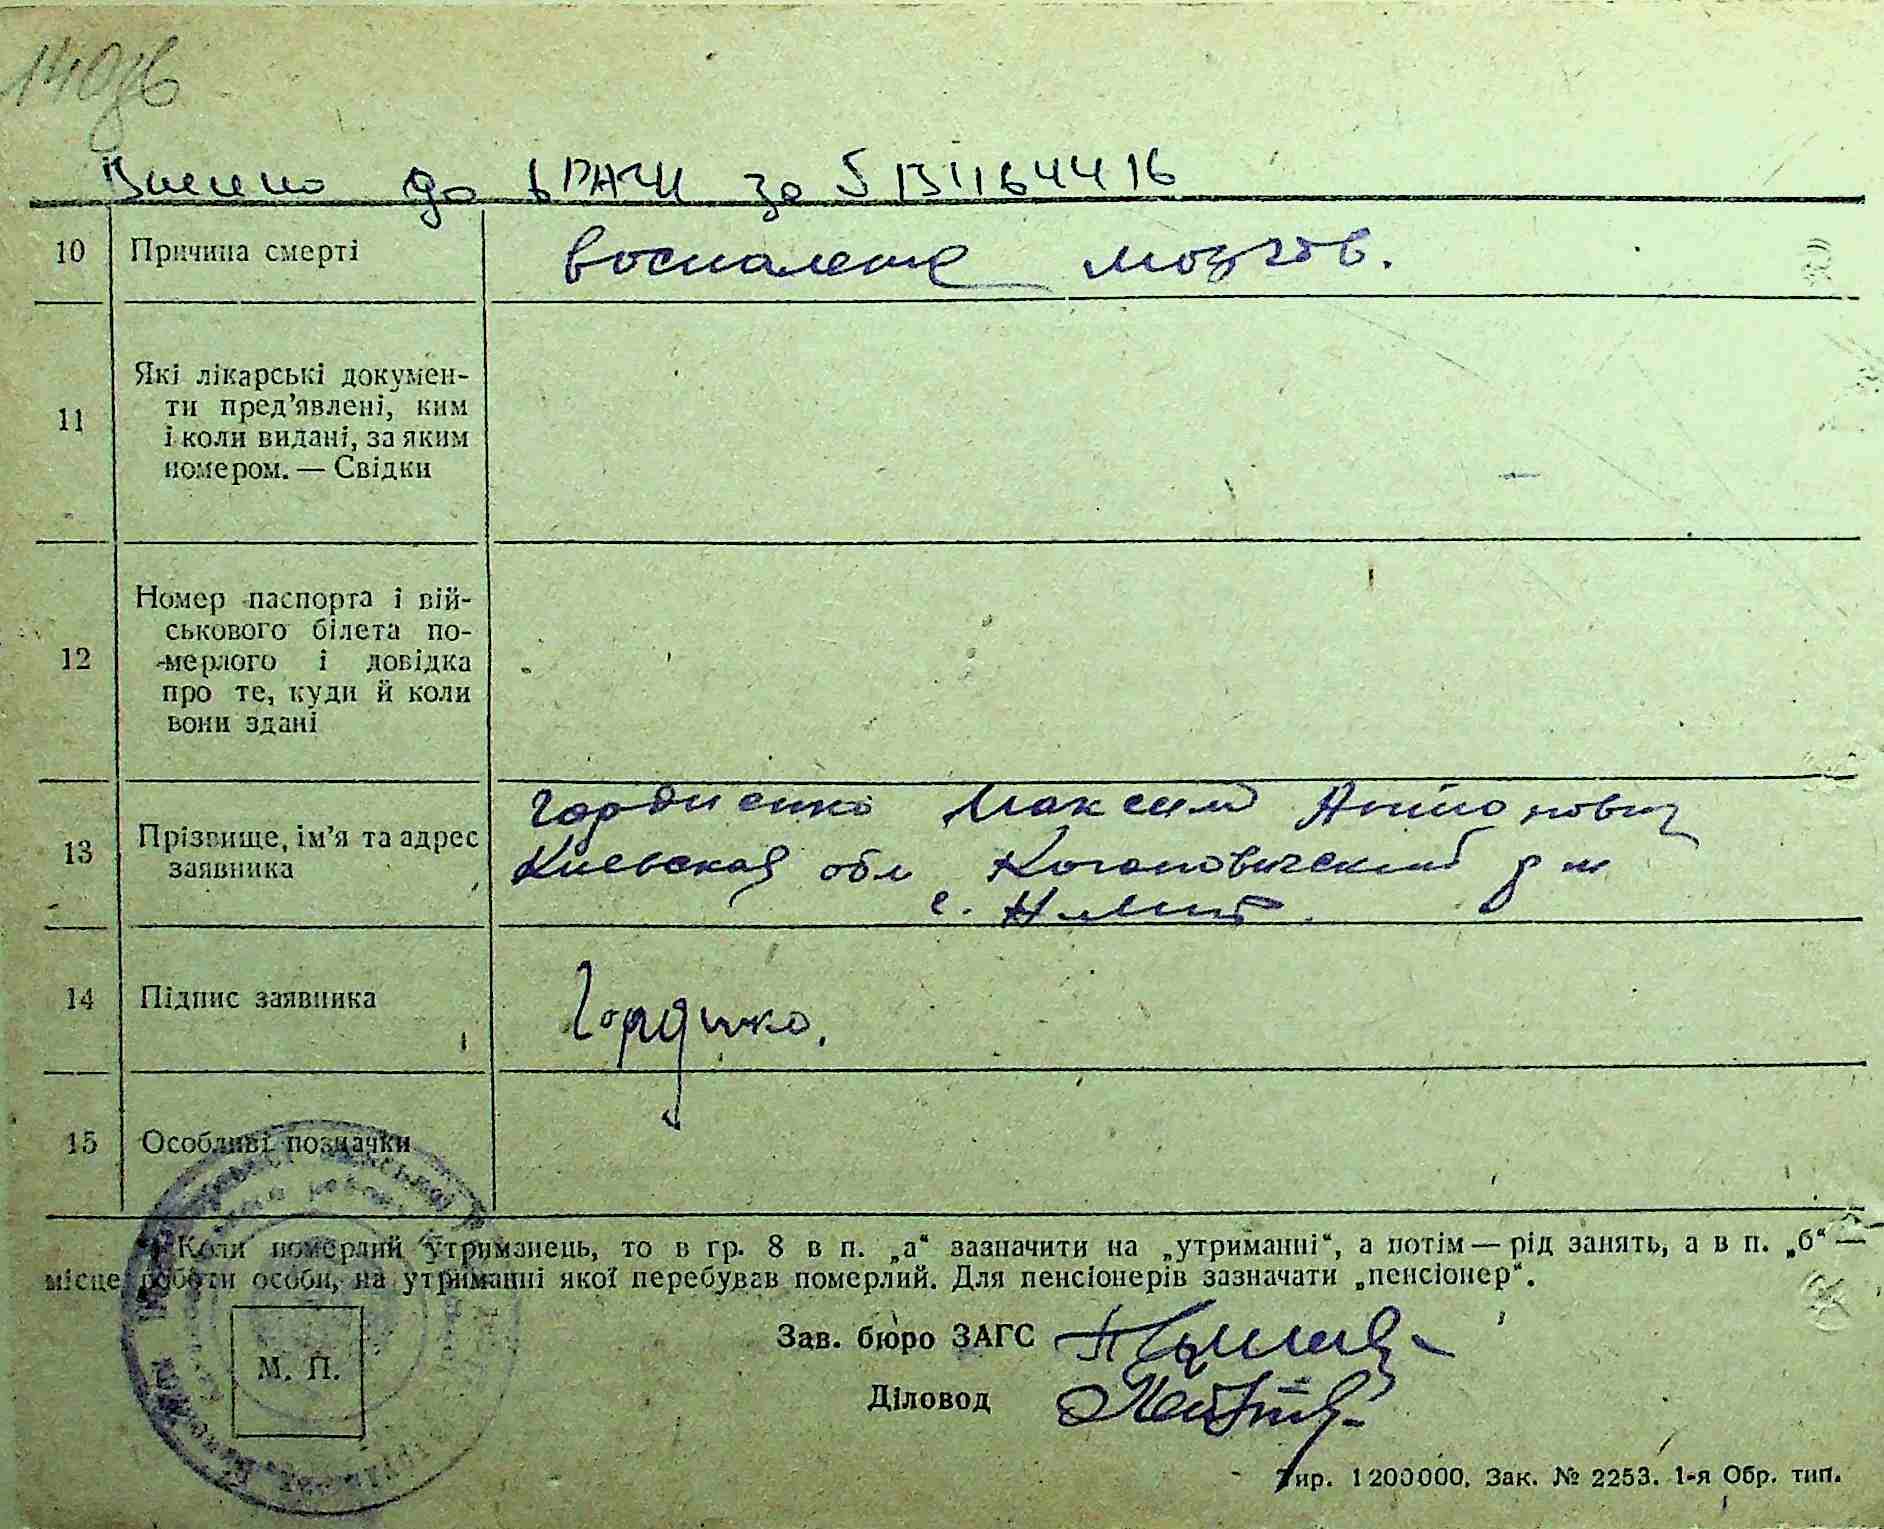 Внесено до ЄРАЦС за № 5
10 Причина смерті воспаление мозгов.
11 Які лікарські докумен-
ти пред'явлені, ким
і коли видані, за яким
номером. — Свідки
12 Номер паспорта і вій-
ськового білета по-
мерлого і довідка
про те, куди й коли
вони здані
Гордиенко Максим Антонович
13 Прізвище, ім'я та адрес Киевская обл Кагановический р-н
заявника с.
14 Підпис заявника
15 Особливі позначки
Коли померлий утриманець, то в гр. 8 в п. „а“ зазначити на „утриманні“, а потім — рід занять, а в п. „б“ —
місце роботи особи, на утриманні якої перебував померлий. Для пенсіонерів зазначати „пенсіонер“.
Зав. бюро ЗАГС
М. П.
Діловод
Тир. 1200000. Зак. № 2253. 1-я Обр. тип.